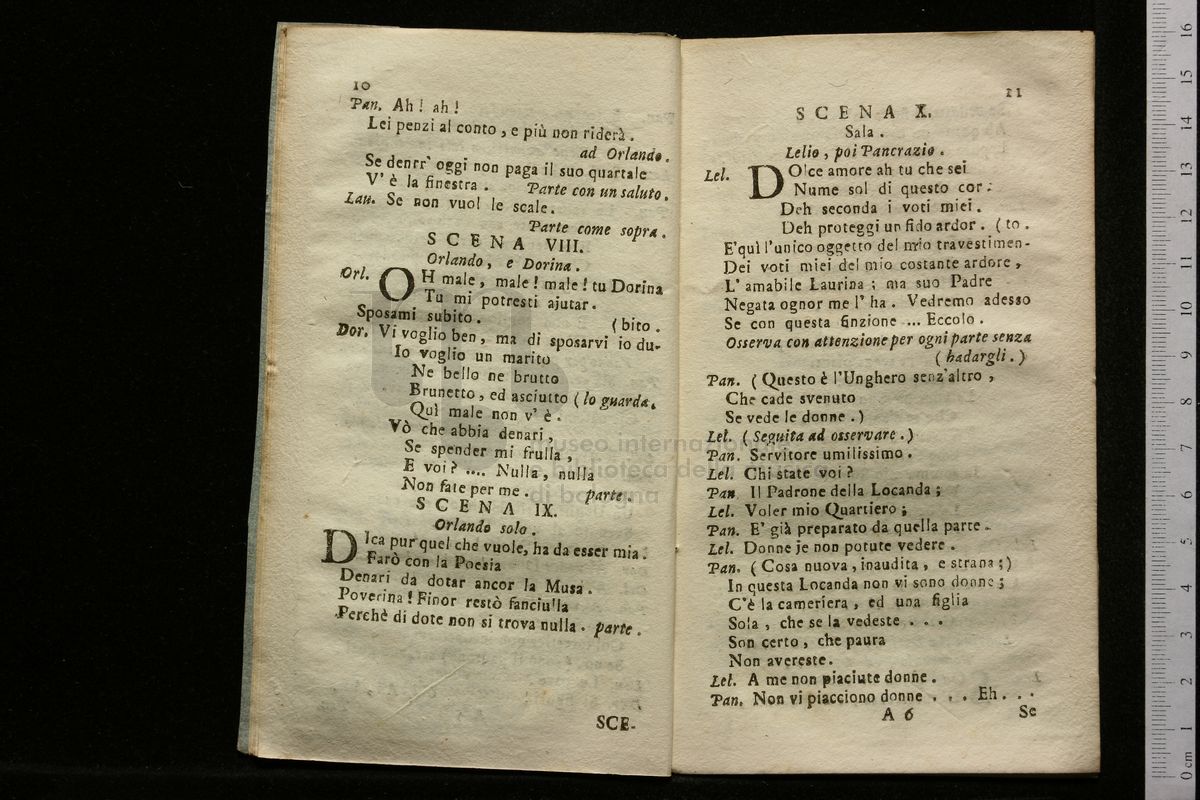 10
Pan. Ah! ah!
Lei penzi al conto, e più non riderà.
ad Orlando.
Se dentr' oggi non paga il suo quartale
V' è la finestra. Parte con un saluto.
Lau. Se non vuol le scale.
Parte come sopra.
SCENA VIII.
Orlando, e Dorina.
Orl. OH male, male! male! tu Dorina
Tu mi potresti ajutar.
Sposami subito. (bito.
Dor. Vi voglio ben, ma di sposarvi io du-
Io voglio un marito
Ne bello ne brutto
Brunetto, ed asciutto (lo guarda.
Quì male non v' è.
Vò che abbia denari,
Se spender mi frulla,
E voi? .... Nulla, nulla
Non fate per me. parte.
SCENA IX.
Orlando solo.
DIca pur quel che vuole, ha da esser mia.
Farò con la Poesia
Denari da dotar ancor la Musa.
Poverina! Finor restò fanciulla
Perchè di dote non si trova nulla. parte.
SCE-
11
SCENA X.
Sala.
Lelio, poi Pancrazio.
Lel. DOlce amore ah tu che sei
Nume sol di questo cor.
Deh seconda i voti miei.
Deh proteggi un fido ardor. (to.
E' quì l'unico oggetto del mio travestimen-
Dei voti miei del mio costante ardore,
L' amabile Laurina; ma suo Padre
Negata ognor me l' ha. Vedremo adesso
Se con questa finzione ... Eccolo.
Osserva con attenzione per ogni parte senza
(badargli.)
Pan. (Questo è l'Unghero senz'altro,
Che cade svenuto
Se vede le donne.)
Lel. (Seguita ad osservare.)
Pan. Servitore umilissimo.
Lel. Chi state voi?
Pan. Il Padrone della Locanda;
Lel. Voler mio Quartiero;
Pan. E' già preparato da quella parte.
Lel. Donne je non potute vedere.
Pan. (Cosa nuova, inaudita, e strana;)
In questa Locanda non vi sono donne;
C'è la cameriera, ed una figlia
Sola, che se la vedeste . . .
Son certo, che paura
Non avereste.
Lel. A me non piaciute donne.
Pan. Non vi piacciono donne . . . Eh. . .
A 6 Se
museo internazionale
e biblioteca della musica
di bologna
0 cm 1 2 3 4 5 6 7 8 9 10 11 12 13 14 15 16